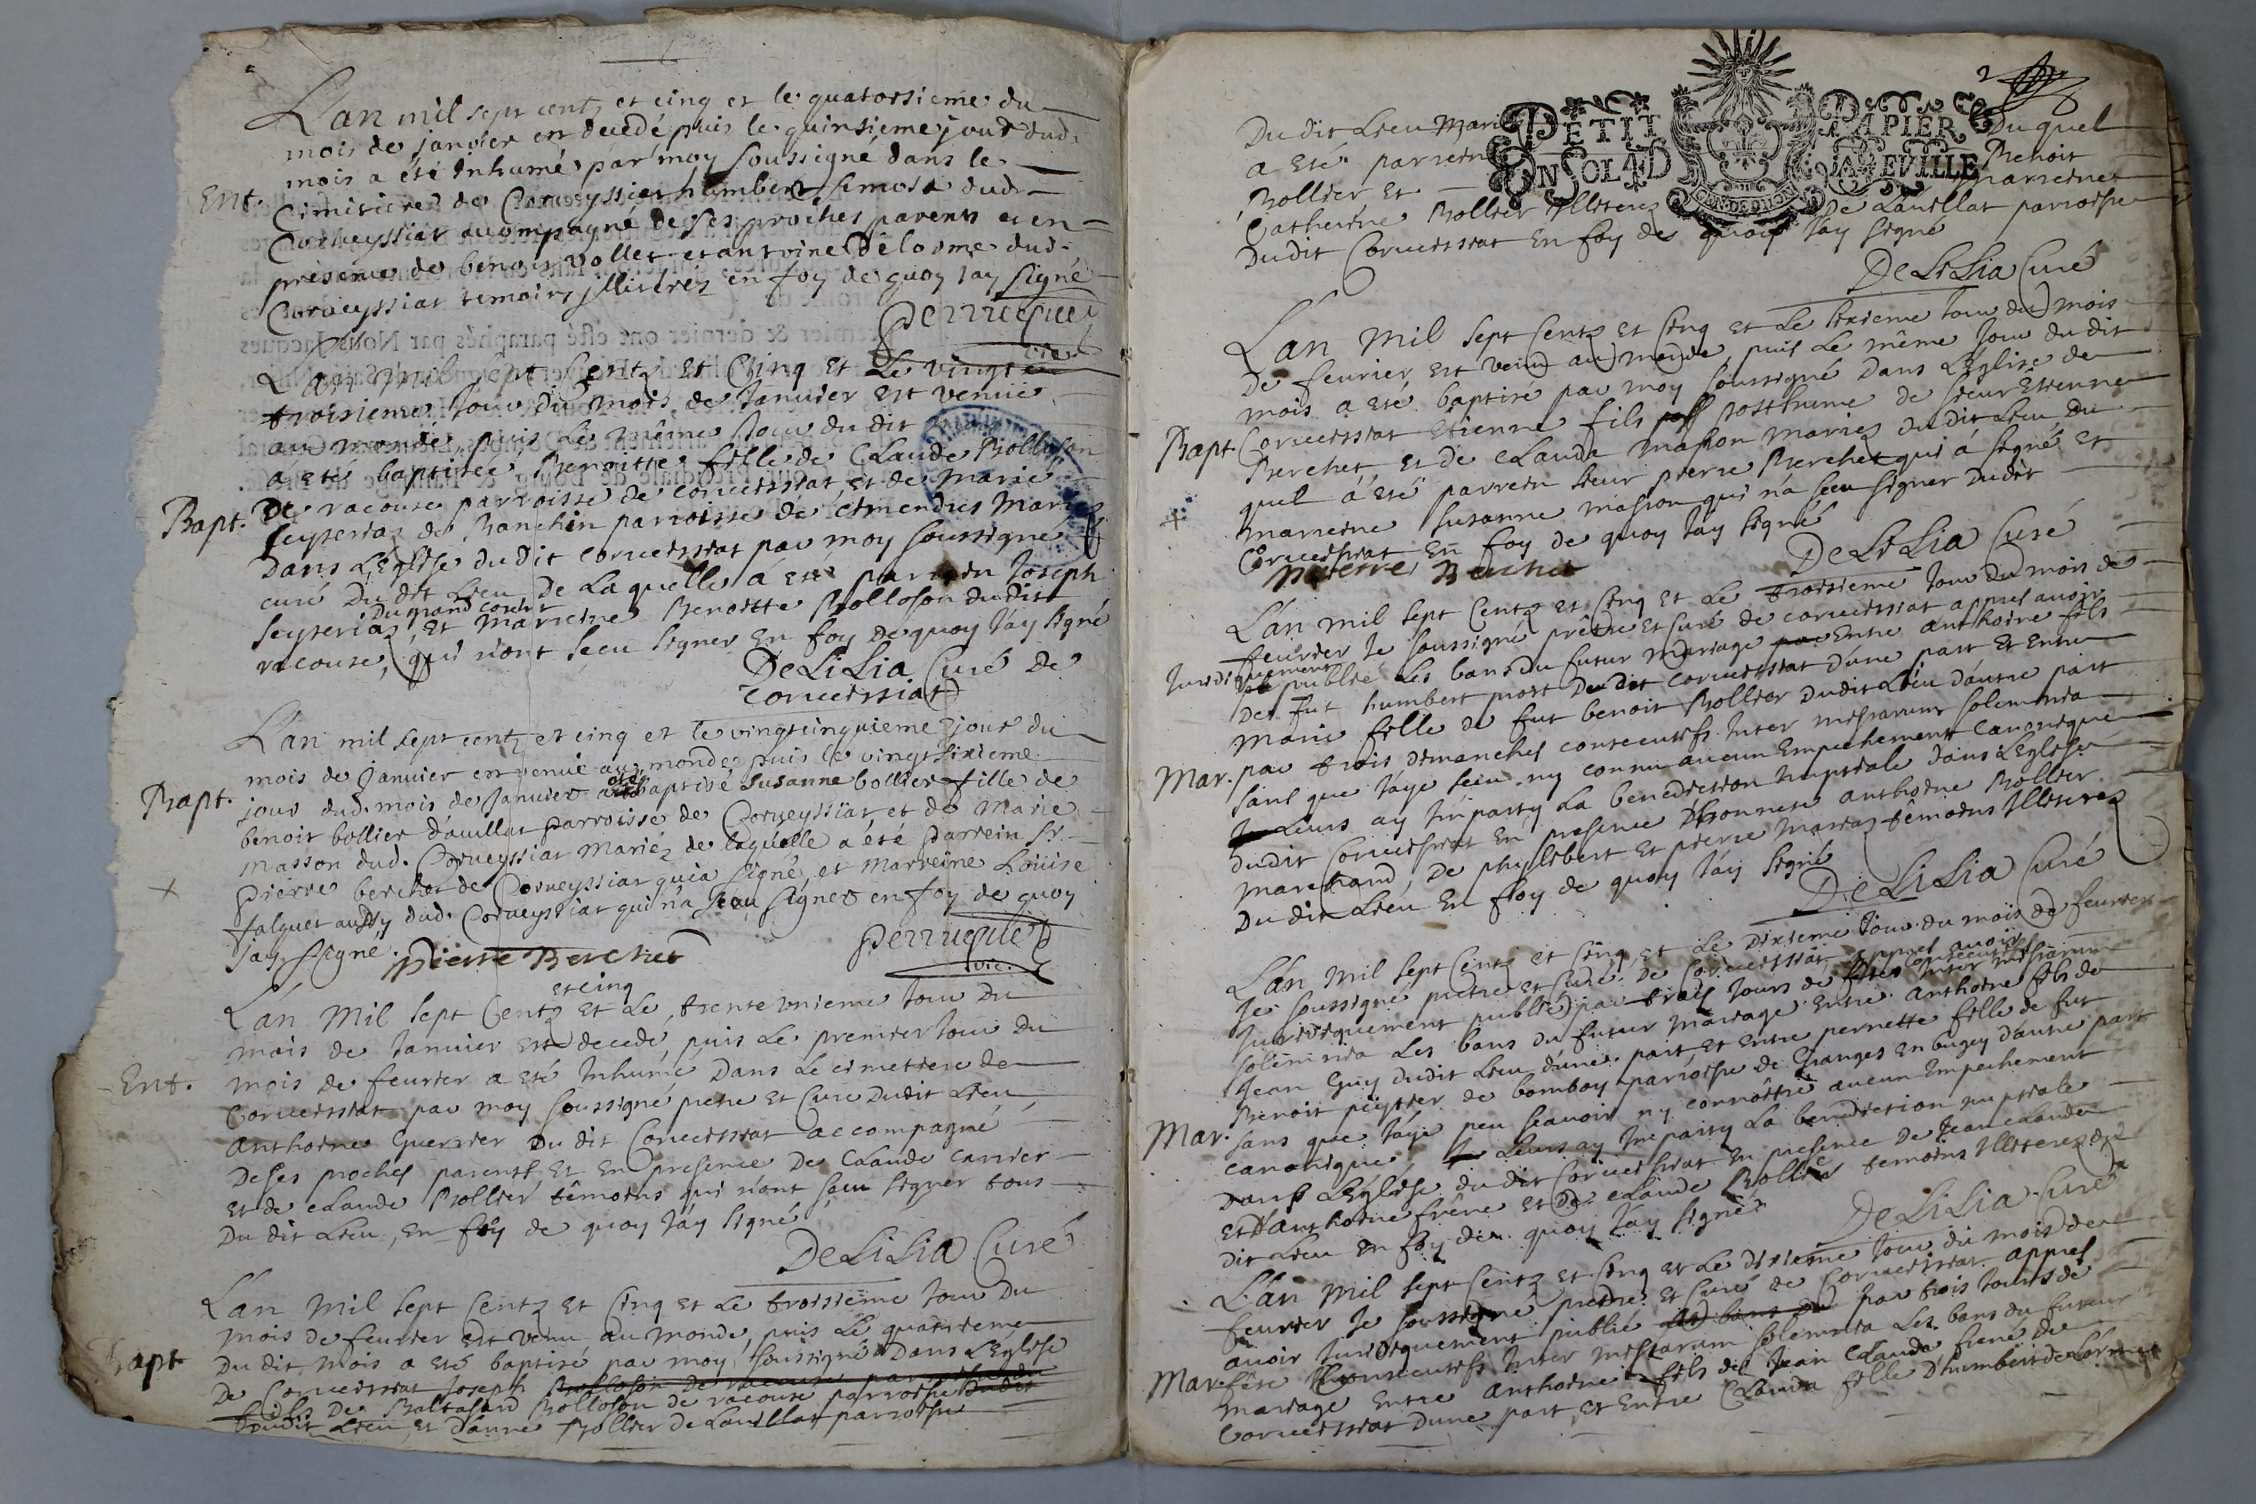 L'an mil sept cent et cinq et le quatorsieme du
mois de janvier est decedé puis le quinsieme jour dud.
mois a été Inhumé par moy soussigné dans le
Ent.
Cimitiere de Corveyssiat humbert dud.
Corveyssiat accompagné de ses proches parents et en
presence de benoit vollet et antoine Delorme dud.
Corveyssiat temoins jllitéréz en foy de quoy jay signé
Perruquet
vic.
L'an mil sept Centz Et Cinq Et Le vingt
troisieme Jour du mois de Janvier est venüe
au monde, puis Le même Jour du dit
a eté baptisée Benoitte fille de Claude Bolloson
Bapt.
De racouse parroisse de corveissiat Et de Marie
seyseriaz de Ranchin parroisse de Cimendres Mariez
Dans L'Eglise du dit corveissiat par moy soussigné
curé Du dit Lieu De La quelle a eté parrein Joseph
Du grand corent
seyseriaz, Et marreine Benoitte Bolloson dudit
racouse, qui n'ont sceu signer En foy De quoy J'ay signé
DeLiLia Curé de
Corveissiat
L'an mil sept cent et cinq et le vingtcinquieme jour du
mois de janvier est venüe au monde puis le vingt sixieme
Bapt.
jour dud. mois de Janvier a eté baptisé Susanne bollier fille de
benoit bollier d'auillat parroisse de Corveyssiat et de Marie
masson dud. Corveyssiat Mariéz de laquelle a été parrein Sr.
pierre berchet de Corveyssiat qui a signé et Marreine Loüise
falquet aussy dud. Corveyssiat qui n'a sceu signer en foy de quoy
jay signé.
Pierre Berchet
Perruquet
vic.
et cinq
L'an Mil sept Centz Et Le trente unieme Jour Du
mois de Janvier Est decedé, puis Le premier Jour Du
Ent.
mois de fevrier a eté Inhumé Dans Le cimetiere de
Corveissiat par moy soussigné pretre Et Curé Dudit Lieu,
anthoine Guerrier Du dit Corveissiat accompagné
De ses proches parents, Et En presence De Claude Carrier
Et de Claude Bollier, têmoins qui n'ont sceu signer tous
Du dit Lieu, En foy de quoy J'ay signé
DeLiLia Curé
L'an Mil sept Centz Et Cinq Et Le troisieme Jour Du
mois de fevrier Est venu au monde, puis Le quatrieme
Bapt
Du dit mois a eté baptisé par moy soussigné Dans L'Eglise
De Corveissiat Joseph
fils De Baltasard Bolloson de racouse parroisse Dudit
Dudit Lieu, Et d'anne Bollier de Lauillat parroisse
2
PETIT PAPIER
UN SOL 4 D LA FEVILLE
Du dit Lieu Mariez Du quel
a eté parrein Benoit
Bollier Et marreine
Catherine Bollier Illiterez De Lauillat parroisse
Dudit Corveissiat En foy de quoy J'ay signé
DeLiLia Curé
L'an Mil sept Centz Et Cinq Et Le sixieme Jour du mois
De fevrier Est venu au monde, puis Le même Jour du dit
mois a eté baptisé par moy soussigné Dans L'Eglise de
Bapt.
Corveissiat Etienne fils posthume de sieur Etienne
Berchet, Et de Clauda Masson mariez du dit Lieu Du
quel a eté parrein sieur pierre Berchet qui a signé Et
marreine Susanne masson qui n'a sceu signer Dudit
Corveissiat En foy de quoy J'ay signé
DeLiLia Curé
Pierre Berchet
L'an mil sept Centz Et Cinq Et Le troisieme Jour Du mois de
fevrier Je soussigné prêtre Et Curé de Corveissiat appres avoir
Juridiquement
publié Les bans du futur Mariage Entre anthoine fils
De fut humbert prost Du dit Corveissiat d'une part Et Entre
Marie fille de fut benoit Bollier Dudit Lieu d'autre part
Mar.
par trois dimanches consecutifs Inter missarum solemnia
sans que J'aye sceu ny connu aucun Empechement Canonique
Leurs ay Imparty La benediction nuptiale dans L'Eglise
dudit Corveissiat En presence D'honnete anthoine Bollier
marchand, De philibert Et pierre têmoins Illiterez
Du dit Lieu En foy de quoy J'ay signé
DeLiLia Curé
L'an Mil sept Centz Et Cinq Et Le dixieme Jour du mois de fevrier
Je soussigné pretre Et Curé De Corveissiat appres avoir
Juridiquement publié par trois Jours de fêtes consecutifs Inter missarum
solemnia Les bans du futur Mariage Entre anthoine fils de
Jean Guy dudit Lieu d'une part, Et Entre pernette fille de fut
Benoit peytier de bomboy parroisse de Granges En bugey d'autre part
Mar.
sans que J'aye peu scavoir ny connoitre aucun Empechement
canonique, Leurs ay Imparty La benediction nuptiale
Dans L'Eglise du dit Corveissiat En presence De Jean Claude
Et d'anthoine frere Et De Claude Bollier temoins Illiterez du
dit Lieu En foy de quoy J'ay signé
DeLiLia Curé
L'an Mil sept Centz Et Cinq Et Le dixieme Jour du mois de
fevrier Je soussigné pretre Et Curé De Corveissiat appres
avoir Juridiquement publié par trois Jours de
Mar.
fête Consecutifs Inter missarum solemnia Les bans du futur
mariage Entre anthoine fils de Jean Claude de
Corveissiat d'une part, Et Entre Clauda fille D'humbert de Lorme